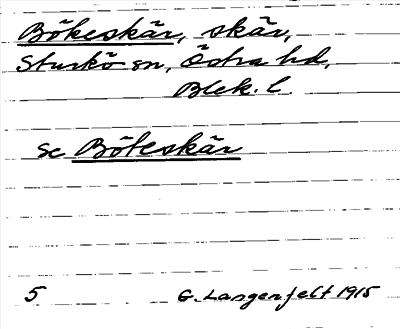 Bökeskär, skär,
Sturkö sn, Östra hd,
Blek. l.
se Böteskär
5 G. Langenfelt 1915